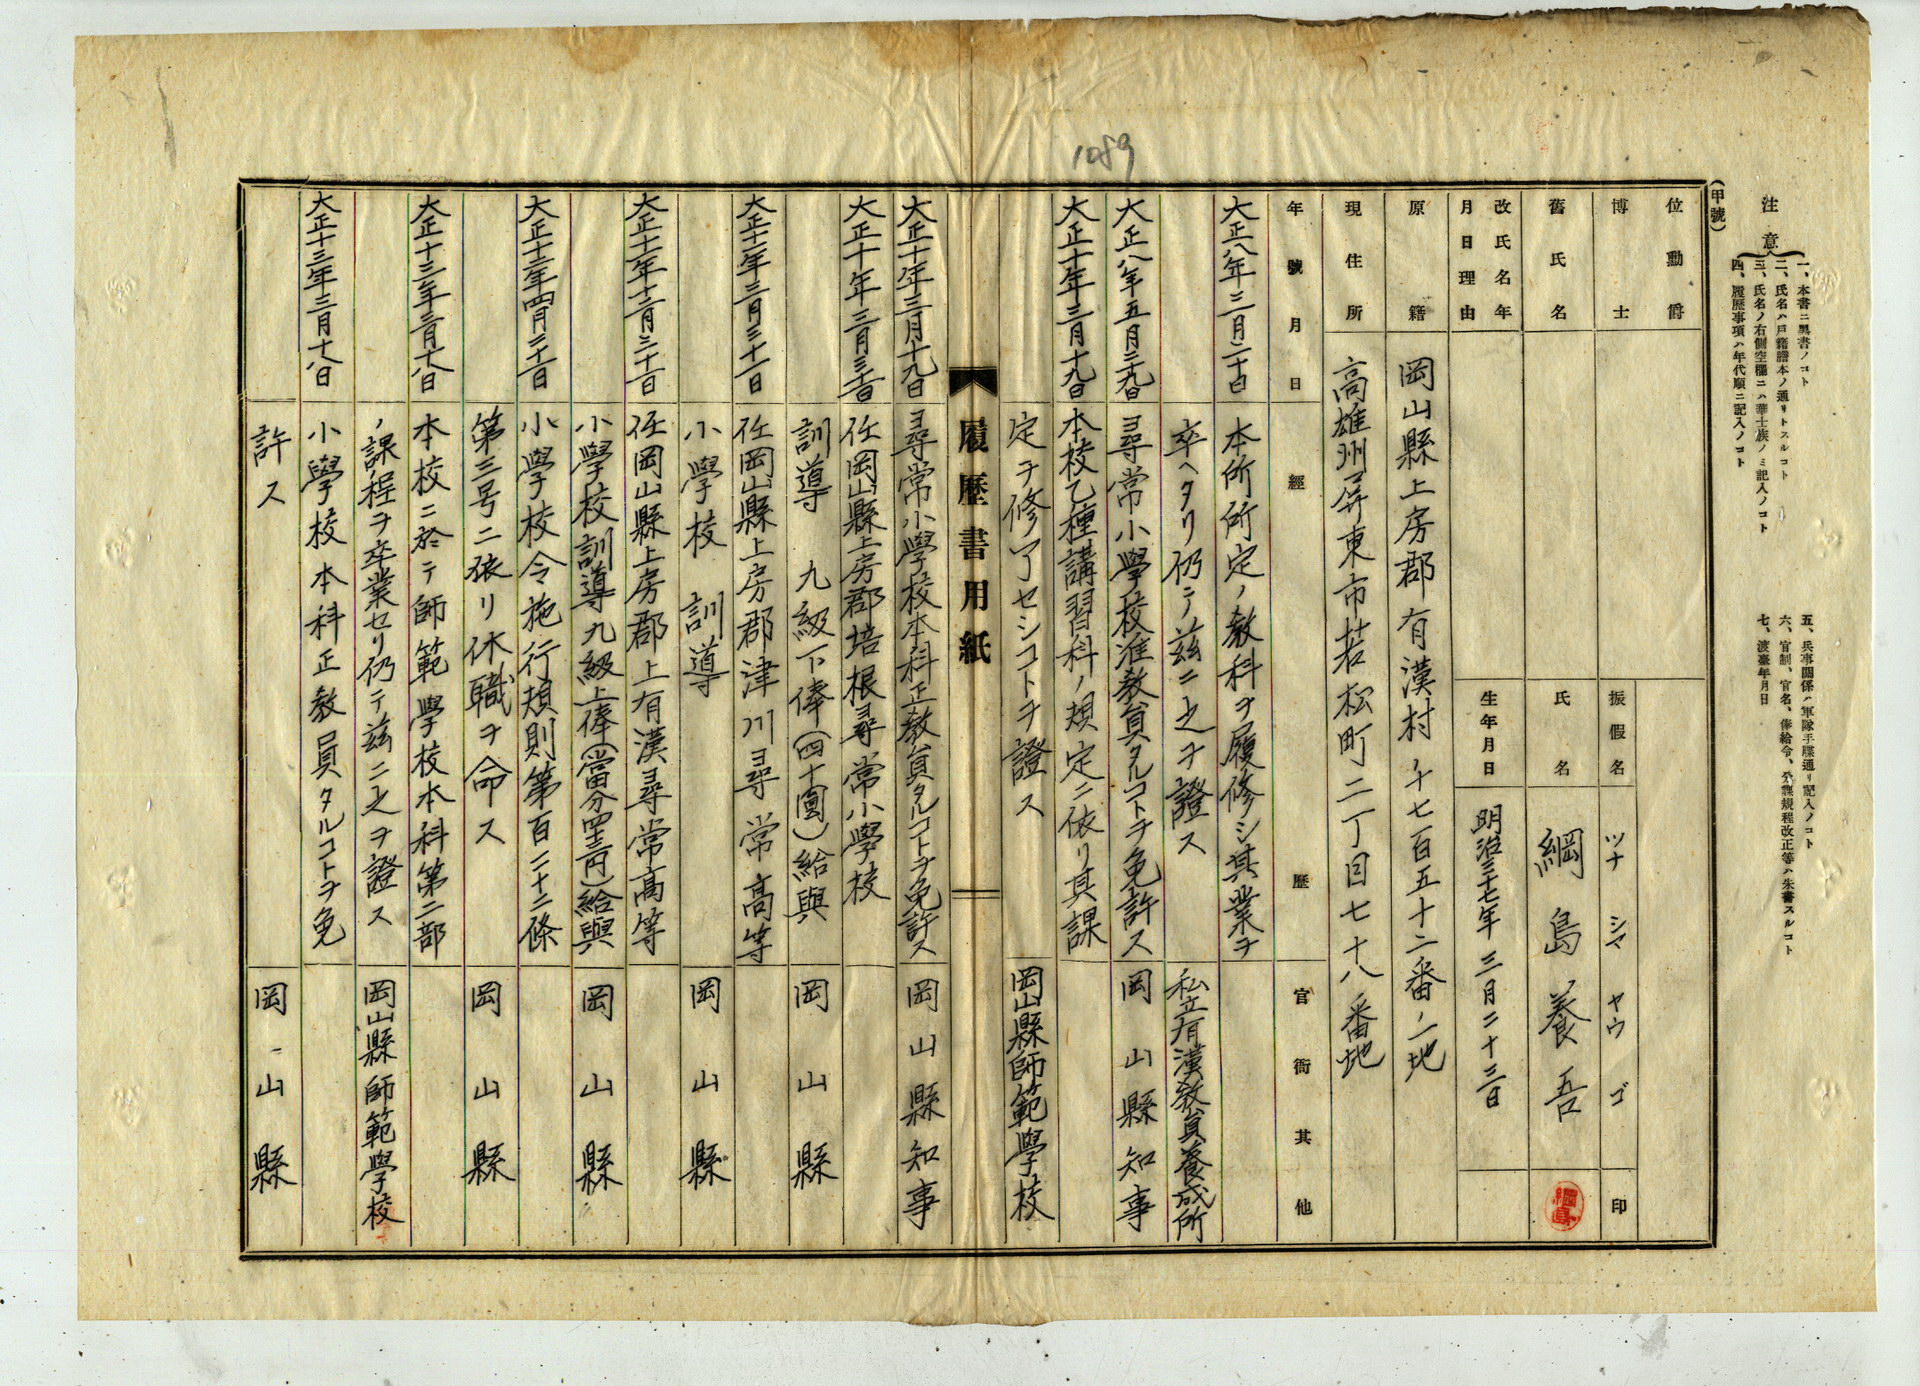 1089
(甲號)
注意
一、本書ニ異書ノコト
二、氏名ハ戸籍謄本ノ通リトスルコト
三、氏名ノ右側空欄ニハ華士族ノミ記入ノコト
四、履歴事項ハ年代順ニ記入ノコト
五、兵事關係ハ軍隊手牒通リ記入ノコト
六、官制、官名、俸給令、分課規程改正等ハ朱書スルコト
七、渡臺年月日
位勳爵
博士
振假名
ツナ シマ ヤウ ゴ
印
舊氏名
氏名
綱島養吾
綱島
改氏名年月日理由
生年月日
明治三十七年三月二十三日
原籍
岡山縣上房郡有漢村千七百五十二番ノ一地
現住所
高雄州屏東市若松町二丁目七十八番地
年號月日
經歷
官衙其他
大正八年三月二十日 本所所定ノ教科ヲ履修シ其業ヲ
卒ヘタリ仍テ茲ニ之ヲ證ス 私立有漢教員養成所
大正八年五月二十九日 尋常小學校准教員タルコトヲ免許ス 岡山縣知事
大正十年三月十九日 本校乙種講習科ノ規定ニ依リ其課
定ヲ修了セシコトヲ證ス 岡山縣師範學校
履歴書用紙
大正十年三月十九日 尋常小學校本科正教員タルコトヲ免許ス 岡山縣知事
大正十年三月三十日 任岡山縣上房郡培根尋常小學校
訓導 九級下俸(四十圓)給與 岡山縣
大正十一年三月三十一日 任岡山縣上房郡津川尋常高等
小學校 訓導 岡山縣
大正十一年十二月三十一日 任岡山縣上房郡上有漢尋常高等
小學校訓導九級上俸(當分四十三円)給與 岡山縣
大正十二年四月二十一日 小學校令施行規則第百二十二條
第三号ニ依リ休職ヲ命ス 岡山縣
大正十三年三月十八日 本校ニ於テ師範學校本科第二部
ノ課程ヲ卒業セリ仍テ茲ニ之ヲ證ス 岡山縣師範學校
大正十三年三月十八日 小學校本科正教員タルコトヲ免
許ス 岡山縣